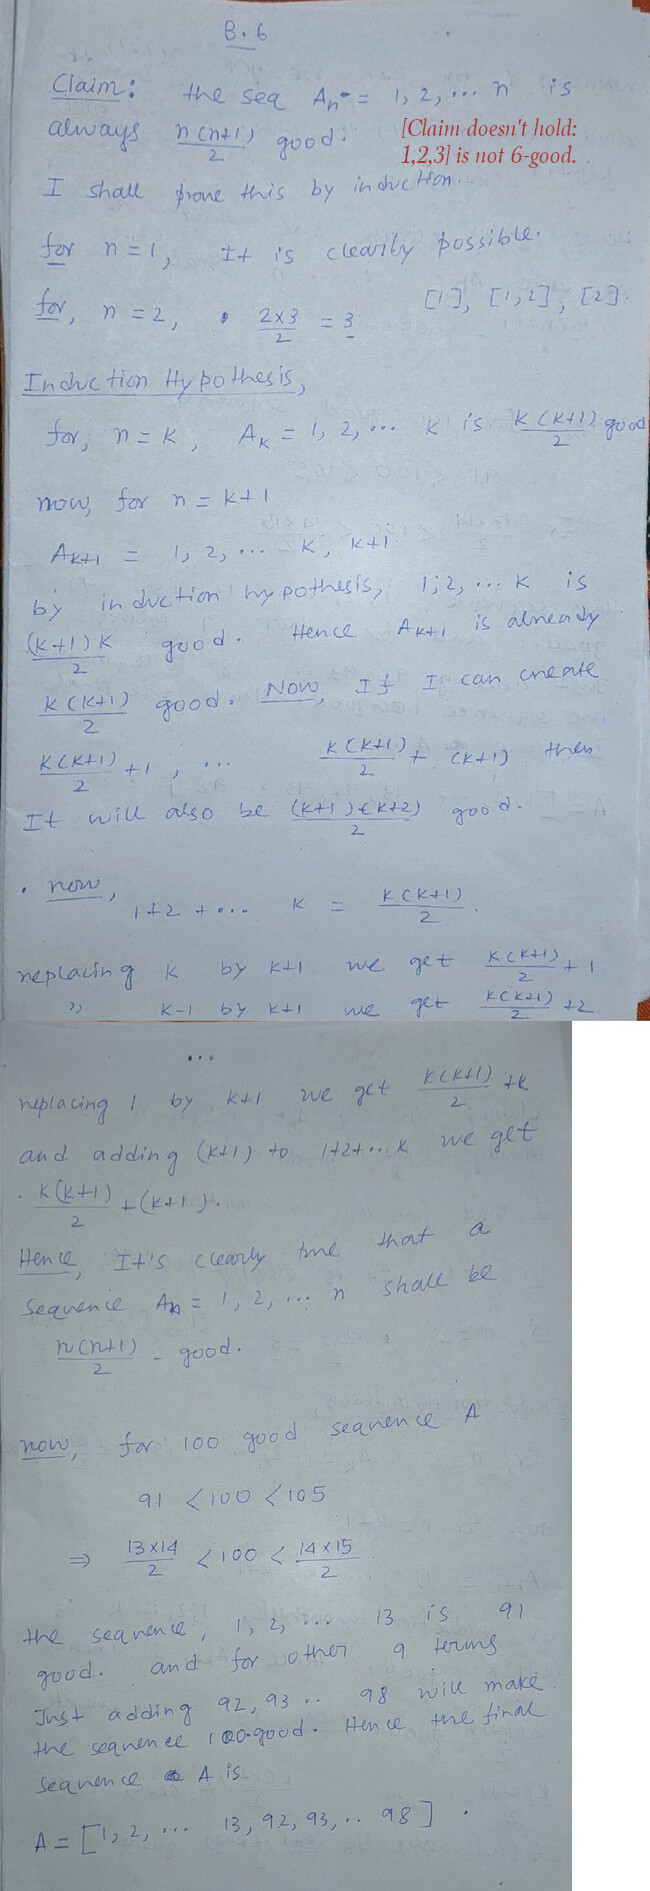 B.6
Claim: the seq Aₙ = 1, 2, ... n is
always n(n+1)/2 good.
[Claim doesn't hold:
1,2,3] is not 6-good.
I shall prove this by induction.
for n = 1, It is clearly possible.
for, n = 2, 2×3/2 = 3 [1], [1,2], [2].
Induction Hypothesis,
for, n = k, Aₖ = 1, 2, ... k is k(k+1)/2 good
now, for n = k+1
Aₖ₊₁ = 1, 2, ... k, k+1
by induction hypothesis, 1, 2, ... k is
(k+1)k/2 good. Hence Aₖ₊₁ is already
k(k+1)/2 good. Now, If I can create
k(k+1)/2 + 1, ... k(k+1)/2 + (k+1) then
It will also be (k+1)(k+2)/2 good.
. now,
1+2+... k = k(k+1)/2.
replacing k by k+1 we get k(k+1)/2 + 1
,, k-1 by k+1 we get k(k+1)/2 +2
...
replacing 1 by k+1 we get k(k+1)/2 +k
and adding (k+1) to 1+2+...k we get
. k(k+1)/2 + (k+1).
Hence, It's clearly true that a
sequence Aₙ = 1, 2, ... n shall be
n(n+1)/2 - good.
now, for 100 good sequence A
91 < 100 < 105
⇒ 13×14/2 < 100 < 14×15/2
the sequence, 1, 2, ... 13 is 91
good. and for other 9 terms
Just adding 92, 93 .. 98 will make
the sequence 100-good. Hence the final
sequence A is
A = [1, 2, ... 13, 92, 93, .. 98] .